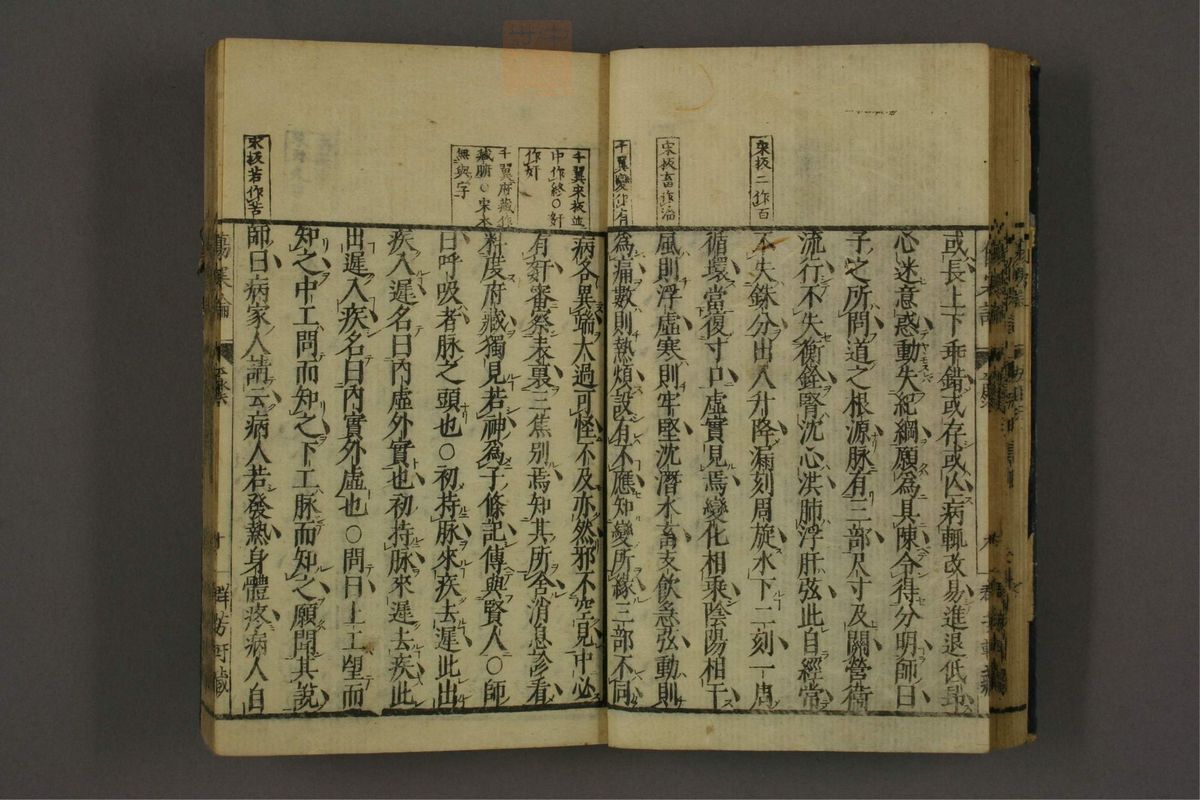 宋板二作百
宋板畜作治
千翼變作有
或長上下乖錯或存或亾病輒改易進退低昂
心迷意惑動失紀綱願爲具陳令得分明師曰
子之所問道之根源脉有三部尺寸及關營衛
流行不失衡銓腎沈心洪肺浮肝弦此自經常
不失銖分出入升降漏刻周旋水下二刻一周
循環當復寸口虛實見焉變化相乘陰陽相干
風則浮虛寒則牢堅沈潛水畜支飲急弦動則
爲痛數則熱煩設有不應知變所緣三部不同
千翼宋板並
中作終○奸
作奸
千翼府藏作
藏腑○宋本
無與字
宋板若作苦
病各異端太過可怪不及亦然邪不空見中必
有奸審察表裏三焦別焉知其所舍消息診看
料度府藏獨見若神爲子條記傳與賢人○師
曰呼吸者脉之頭也○初持脉來疾去遲此出
疾入遲名曰內虛外實也初持脉來遲去疾此
出遲入疾名曰內實外虛也○問曰上工望而
知之中工問而知之下工脉而知之願聞其說
師曰病家人請云病人若發熱身體疼病人自
傷寒論
十